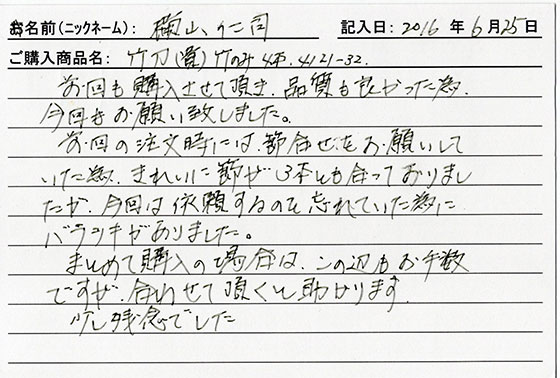 お名前(ニックネーム): 横山 仁司 記入日: 2016 年 6 月 25 日
ご購入商品名: 竹刀(直)竹のみ4本. 4121-32.
前回も購入させて頂き、品質も良かった為、
今回もお願い致しました。
前回の注文時には、節合せをお願いして
いた為、きれいに節が3本とも合っておりまし
たが、今回は依頼するのを忘れていた為に
バラツキがありました。
まとめて購入の場合は、この辺もお手数
ですが、合わせて頂くと助かります。
少し残念でした